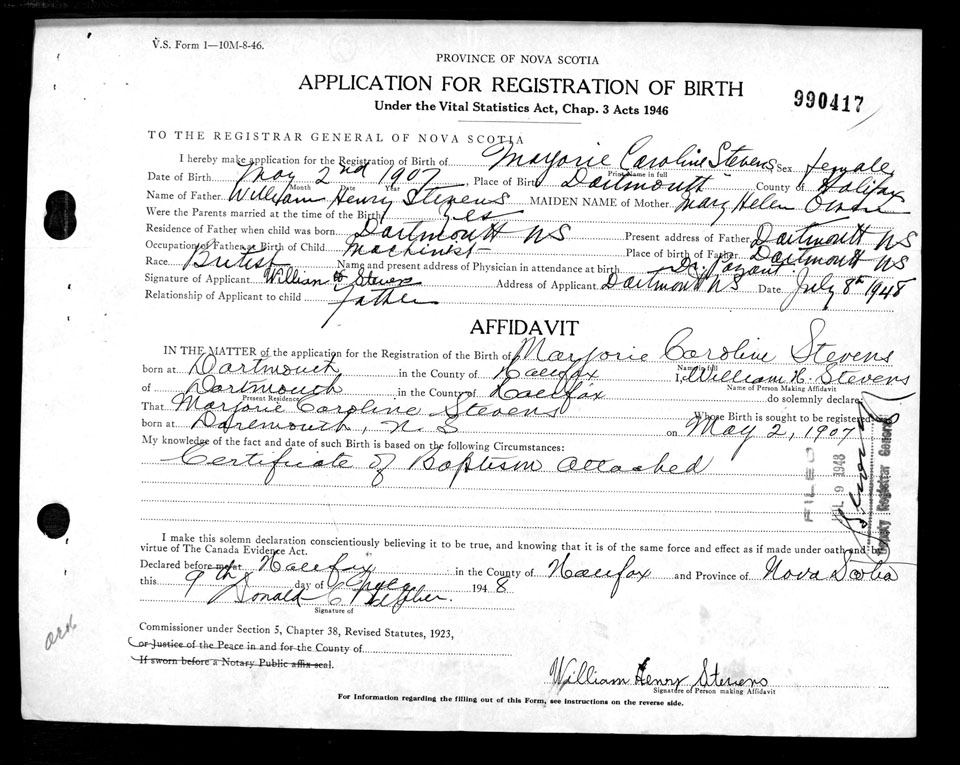 V.S. Form 1—10M-8-46.
PROVINCE OF NOVA SCOTIA
APPLICATION FOR REGISTRATION OF BIRTH
990417
Under the Vital Statistics Act, Chap. 3 Acts 1946
TO THE REGISTRAR GENERAL OF NOVA SCOTIA
I hereby make application for the Registration of Birth of Marjorie Caroline Stevens Sex female
Print Name in full
Date of Birth May 2nd 1907, Place of Birth Dartmouth County of Halifax
Month Date Year
Name of Father William Henry Stevens MAIDEN NAME of Mother Mary Helen
Were the Parents married at the time of the Birth yes
Residence of Father when child was born Dartmouth NS Present address of Father Dartmouth NS
Occupation of Father at Birth of Child Machinist Place of birth of Father Dartmouth NS
Race British Name and present address of Physician in attendance at birth Dr.
Signature of Applicant William H Stevens Address of Applicant Dartmouth NS Date July 8th 1948
Relationship of Applicant to child father
AFFIDAVIT
IN THE MATTER of the application for the Registration of the Birth of Marjorie Caroline Stevens
Name in full
born at Dartmouth in the County of Halifax I, William H. Stevens
Name of Person Making Affidavit
of Dartmouth in the County of Halifax do solemnly declare
Present Residence
That Marjorie Caroline Stevens Whose Birth is sought to be registered was
born at Daremouth, N. S on May 2, 1907
My knowledge of the fact and date of such Birth is based on the following Circumstances:
Certificate of Baptism attached
FILED
JUL 9 1948
Deputy Registrar General
I make this solemn declaration conscientiously believing it to be true, and knowing that it is of the same force and effect as if made under oath and by
virtue of The Canada Evidence Act.
Declared before me at Halifax in the County of Halifax and Province of Nova Scotia
this 9th day of July 1948
Donald C
Signature of
Commissioner under Section 5, Chapter 38, Revised Statutes, 1923,
or Justice of the Peace in and for the County of
If sworn before a Notary Public affix seal.
William Henry Stevens
Signature of Person making Affidavit
For Information regarding the filling out of this Form, see instructions on the reverse side.